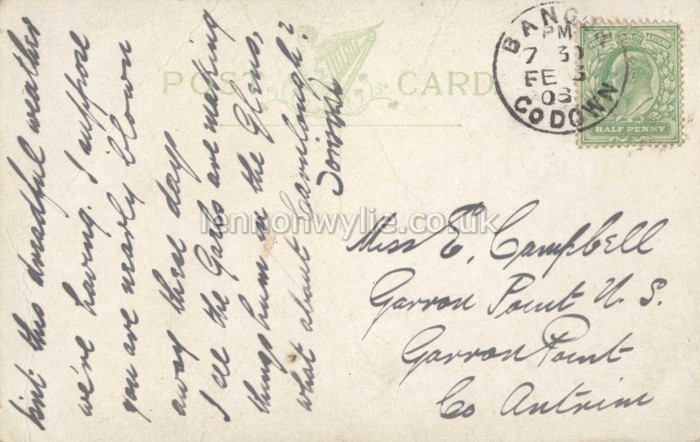 POST CARD
BANGOR
PM
7 30
FE 3
08
CO DOWN
HALF PENNY
isn't this dreadful weather
we're having. I suppose
you are nearly blown
away these days
I see the Gaels are making
things hum in the Glens,
what about Carnlough?
Miss E. Campbell
Garron Point N. S.
Garron Point
Co Antrim
lennonwylie.co.uk